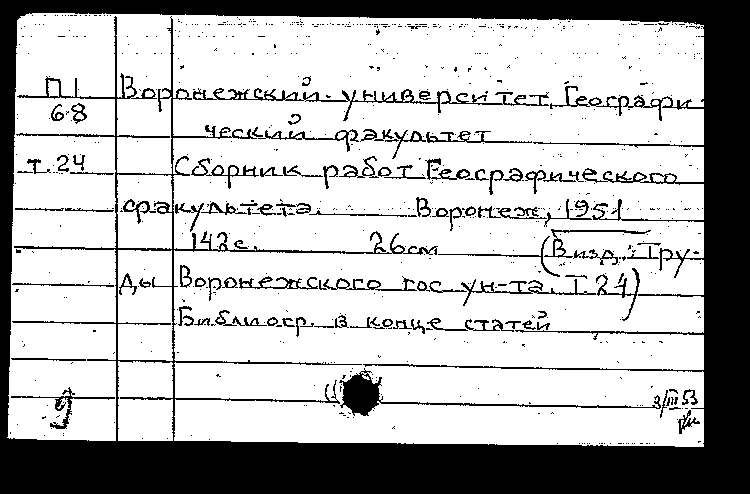 П1 Воронежский университет. Географи-
68 ческий факультет
т.24 Сборник работ Географического
факультета. Воронеж, 1951
142с. 26см (В изд.: Тру-
ды Воронежского гос ун-та. Т.24)
Библиогр. в конце статей
3/III 53